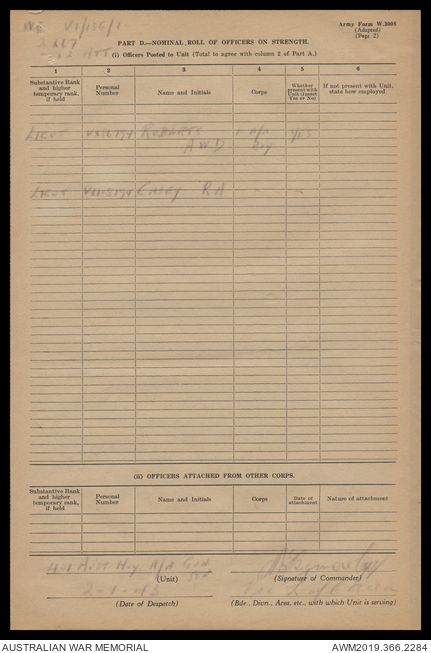 Army Form W.3008
(Adapted)
(Page 2)
V1/136/1
PART D.—NOMINAL ROLL OF OFFICERS ON STRENGTH.
(i) Officers Posted to Unit (Total to agree with column 2 of Part A.)
1 2 3 4 5 6
Substantive Rank and higher temporary rank, if held
Personal Number
Name and Initials
Corps
Whether present with Unit (Insert Yes or No)
If not present with Unit, state how employed
Lieut ROBERTS A/A YES
A W D Bty
Lieut CASEY R A - -
(ii) OFFICERS ATTACHED FROM OTHER CORPS.
Substantive Rank and higher temporary rank, if held
Personal Number
Name and Initials
Corps
Date of attachment
Nature of attachment
Aust Hvy A/A Gun
(Unit) (Signature of Commander)
2-1-43
(Date of Despatch) (Bde., Divn., Area, etc., with which Unit is serving)
AUSTRALIAN WAR MEMORIAL AWM2019.366.2284